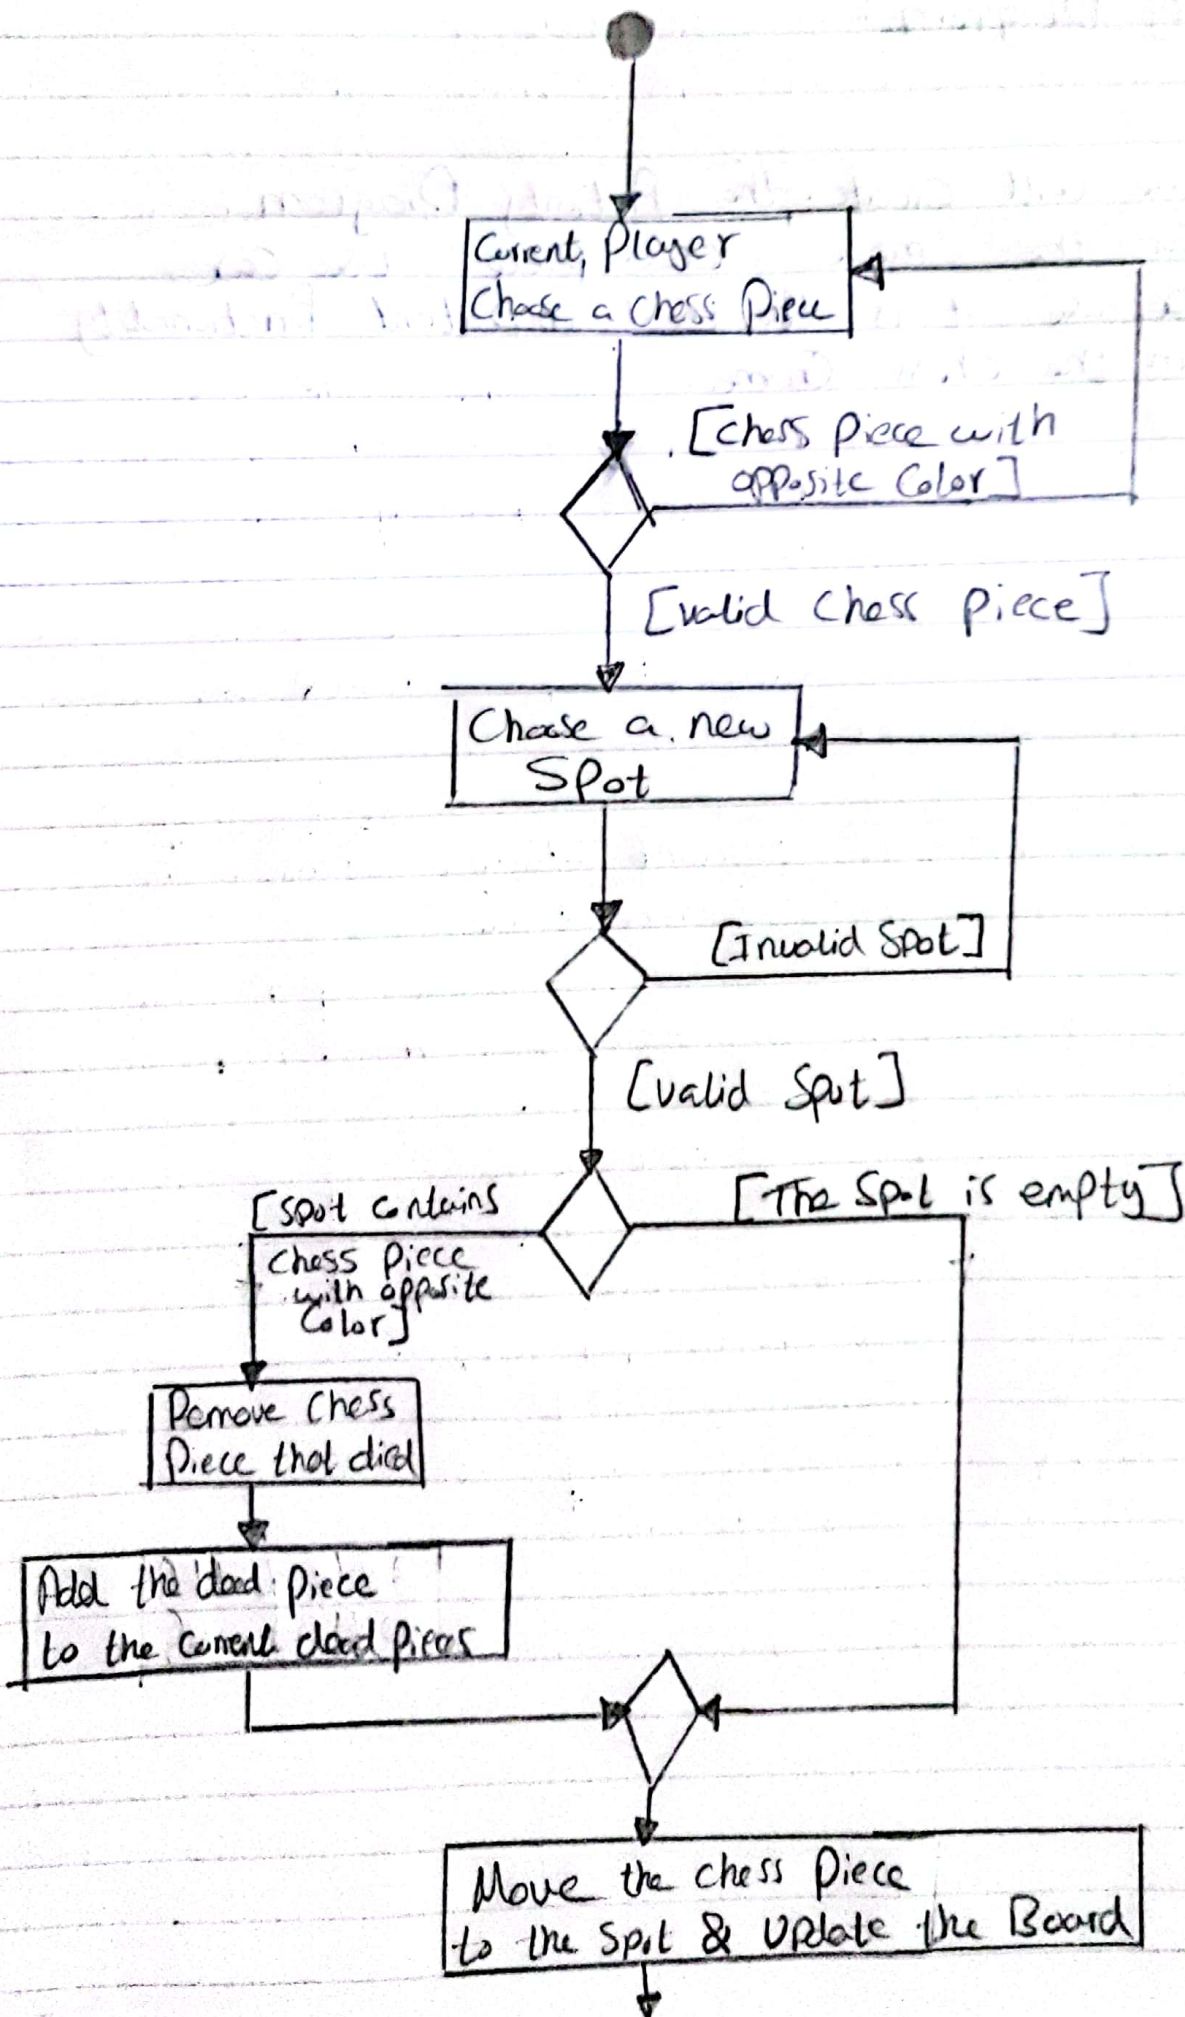 Current, Player
Choose a chess Piece
[Chess Piece with
opposite Color]
[valid Chess piece]
Choose a new
Spot
[Invalid Spot]
[valid Spot]
[Spot contains
Chess Piece
with opposite
Color]
[The Spot is empty]
Remove Chess
Piece that died
Add the dead piece
to the current dead pieces
Move the chess Piece
to the Spot & Update the Board